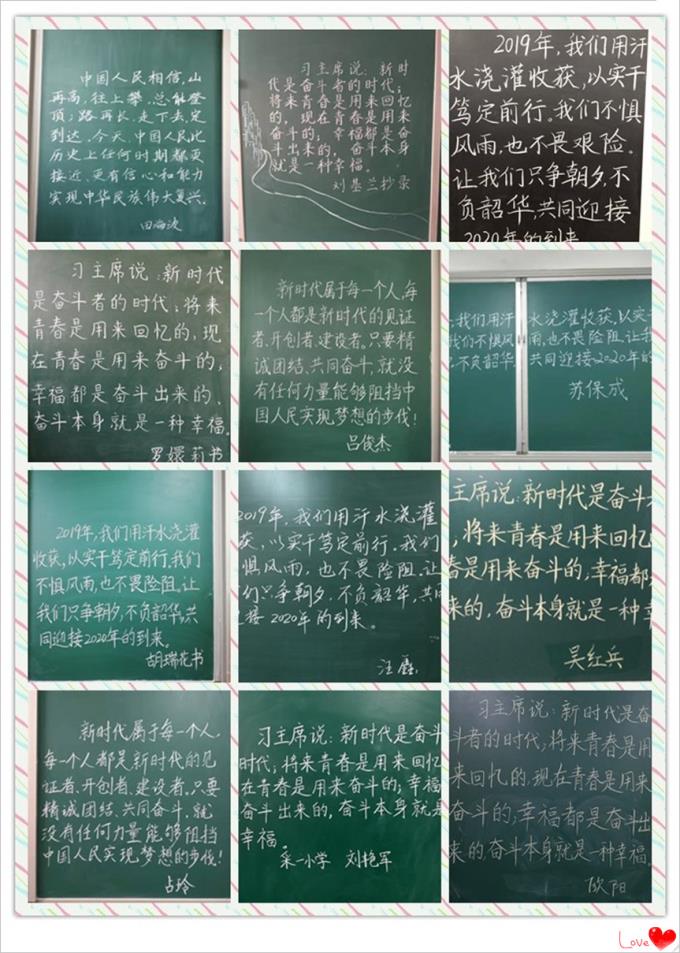 中国人民相信,山
再高,往上攀,总能登
顶;路再长,走下去,定
到达。今天,中国人民比
历史上任何时期都更
接近、更有信心和能力
实现中华民族伟大复兴。
习主席说:新时
代是奋斗者的时代;
将来青春是用来回忆
的,现在青春是用来
奋斗的,幸福都是奋
斗出来的,奋斗本身
就是一种幸福。
刘基兰抄录
2019年,我们用汗
水浇灌收获,以实干
笃定前行。我们不惧
风雨,也不畏艰险。
让我们只争朝夕,不
负韶华,共同迎接
2020年的到来
习主席说:新时代
是奋斗者的时代,将来
青春是用来回忆的,现
在青春是用来奋斗的,
幸福都是奋斗出来的、
奋斗本身就是一种幸福。
罗嫒莉书
新时代属于每一个人,每
一个人都是新时代的见证
者、开创者、建设者,只要精
诚团结、共同奋斗,就没
有任何力量能够阻挡中
国人民实现梦想的步伐!
吕俊杰
,我们用汗水浇灌收获,以实干
我们不惧风雨,也不畏险阻,让我
不负韶华,共同迎接2020年的
苏保成
2019年,我们用汗水浇灌
收获,以实干笃定前行。我们
不惧风雨,也不畏险阻。让
我们只争朝夕,不负韶华,共
同迎接2020年的到来。
胡瑞花书
2019年,我们用汗水浇灌
获,以实干笃定前行。我们
惧风雨,也不畏险阻。让
们只争朝夕,不负韶华,共同
接2020年的到来。
主席说:新时代是奋斗
,将来青春是用来回忆
春是用来奋斗的,幸福都
来的,奋斗本身就是一种幸
吴红兵
新时代属于每一个人,
每一个人都是新时代的见
证者、开创者、建设者,只要
精诚团结、共同奋斗,就
没有任何力量能够阻挡
中国人民实现梦想的步伐!
占玲
习主席说:新时代是奋斗
时代;将来青春是用来回忆
在青春是用来奋斗的;幸福
奋斗出来的,奋斗本身就是
幸福。
采一小学 刘艳军
习主席说:新时代是奋
斗者的时代;将来青春是用
来回忆的,现在青春是用来
奋斗的;幸福都是奋斗出
来的,奋斗本身就是一种幸福。
欧阳
Love